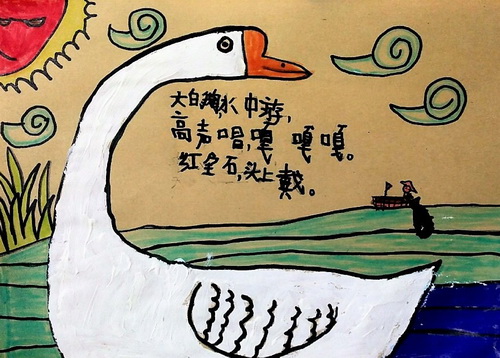 大白鹅,水中游,
高声唱,嘎嘎嘎。
红宝石,头上戴。